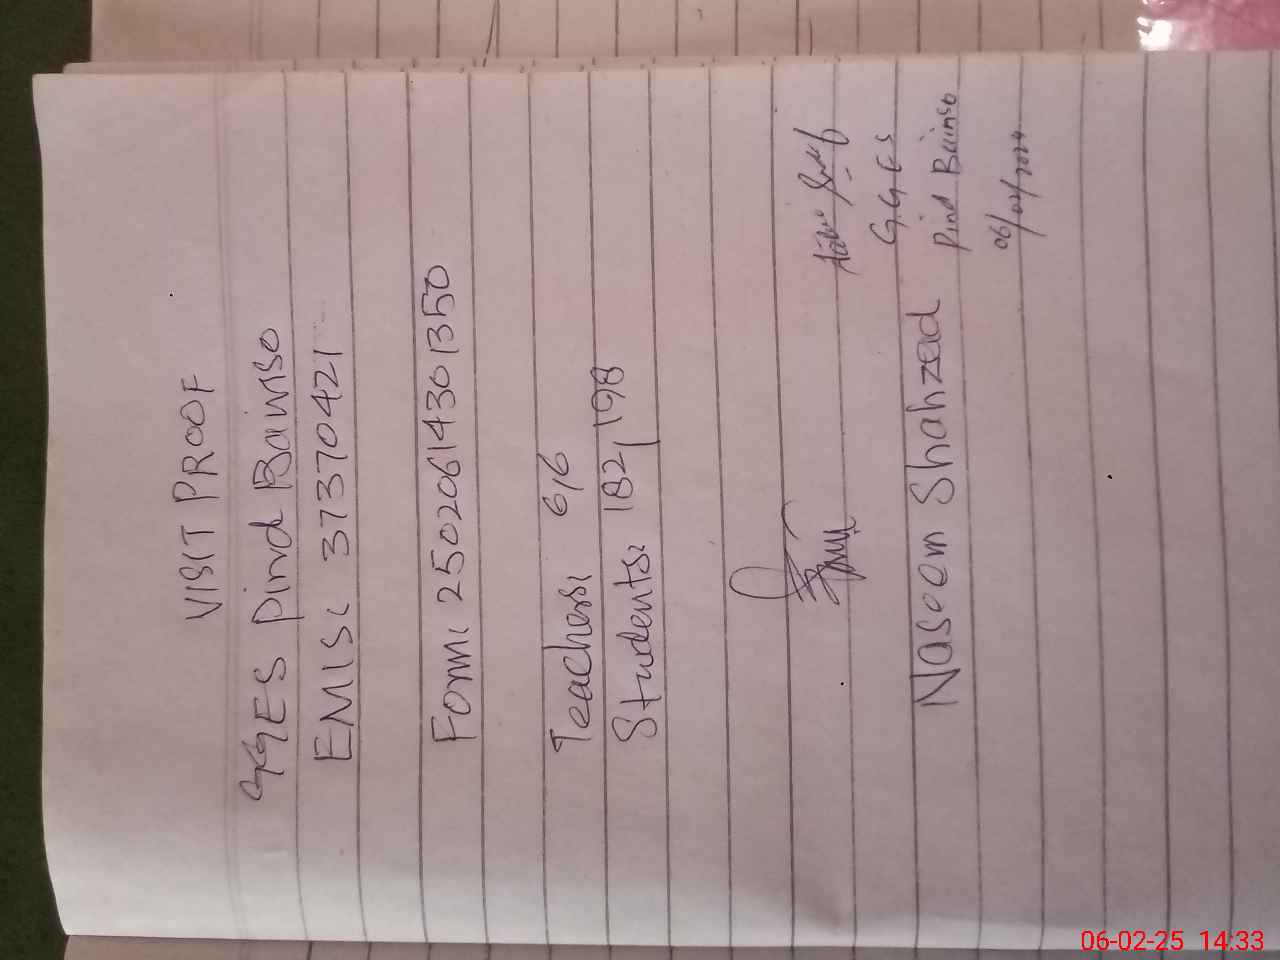 VISIT PROOF
GGES Pind Bainso
EMIS: 37370421
Form: 25020614301350
Teachers: 6/6
Students: 182/198
Naseem Shahzad
G.G.E.S
Pind Bainso
06/02/2024
06-02-25 14:33